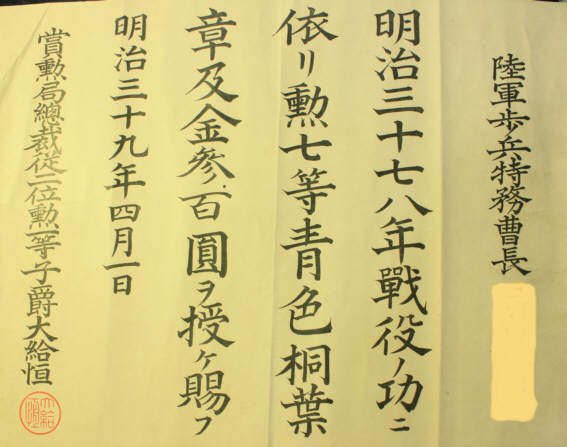 陸軍歩兵特務曹長
明治三十七八年戰役ノ功ニ
依リ勲七等青色桐葉
章及金參百圓ヲ授ケ賜フ
明治三十九年四月一日
賞勲局總裁従二位勲一等子爵大給恒
大給恒